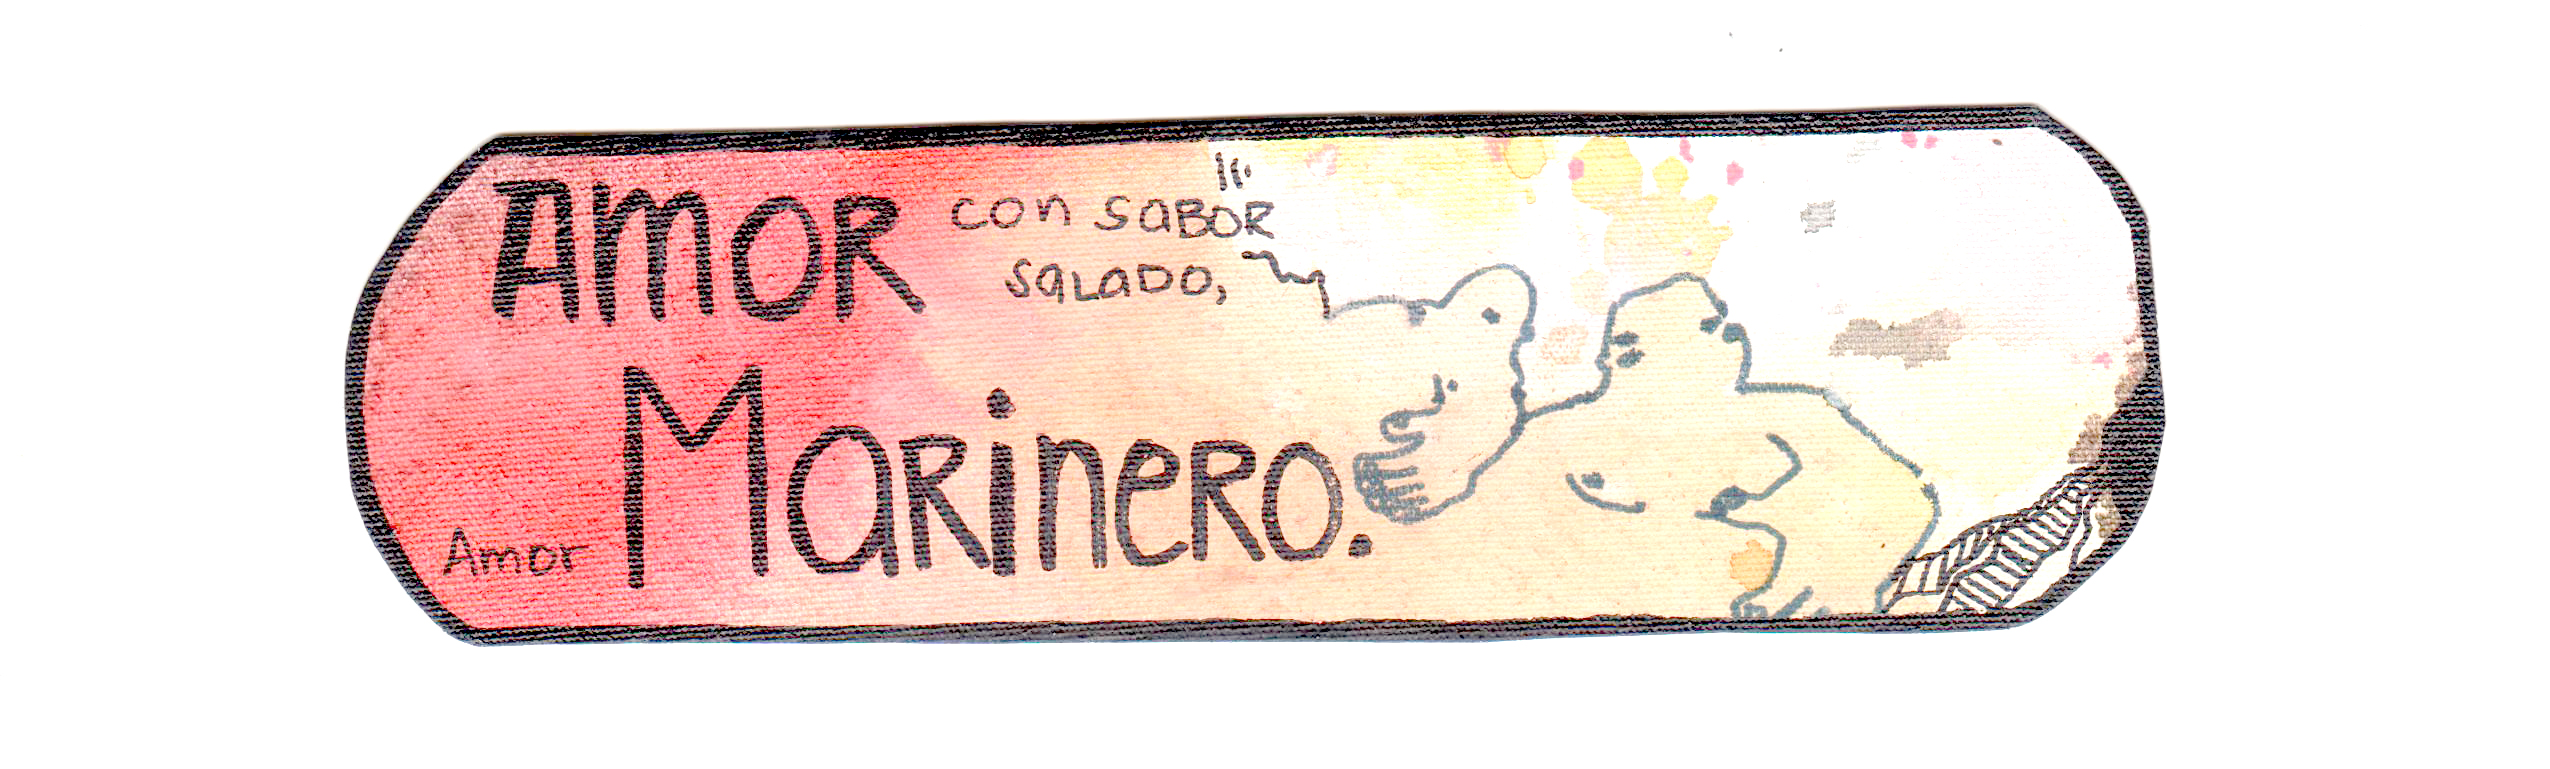 Amor con sabor
salado,
Amor Marinero.